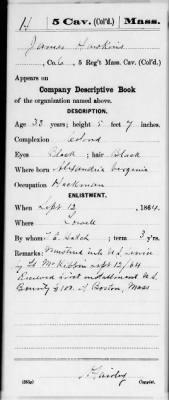 H 5 Cav. (Col'd.) Mass.
James Hawkins
, Co. 6, 5 Reg't Mass. Cav. (Col'd.)
Appears on
Company Descriptive Book
of the organization named above.
DESCRIPTION.
Age 33 years; height 5 feet 7 inches.
Complexion Colord
Eyes Black; hair Black
Where born Alexandria Virginia
Occupation Hackman
ENLISTMENT.
When Sept 12, 1864.
Where Lowell
By whom Hatch; term 3 y'rs.
Remarks: Mustered into U.S. Service
by Lt. McKibbin Sept 12/64
Received first installment U.S.
Bounty $100. Boston, Mass
Copyist.